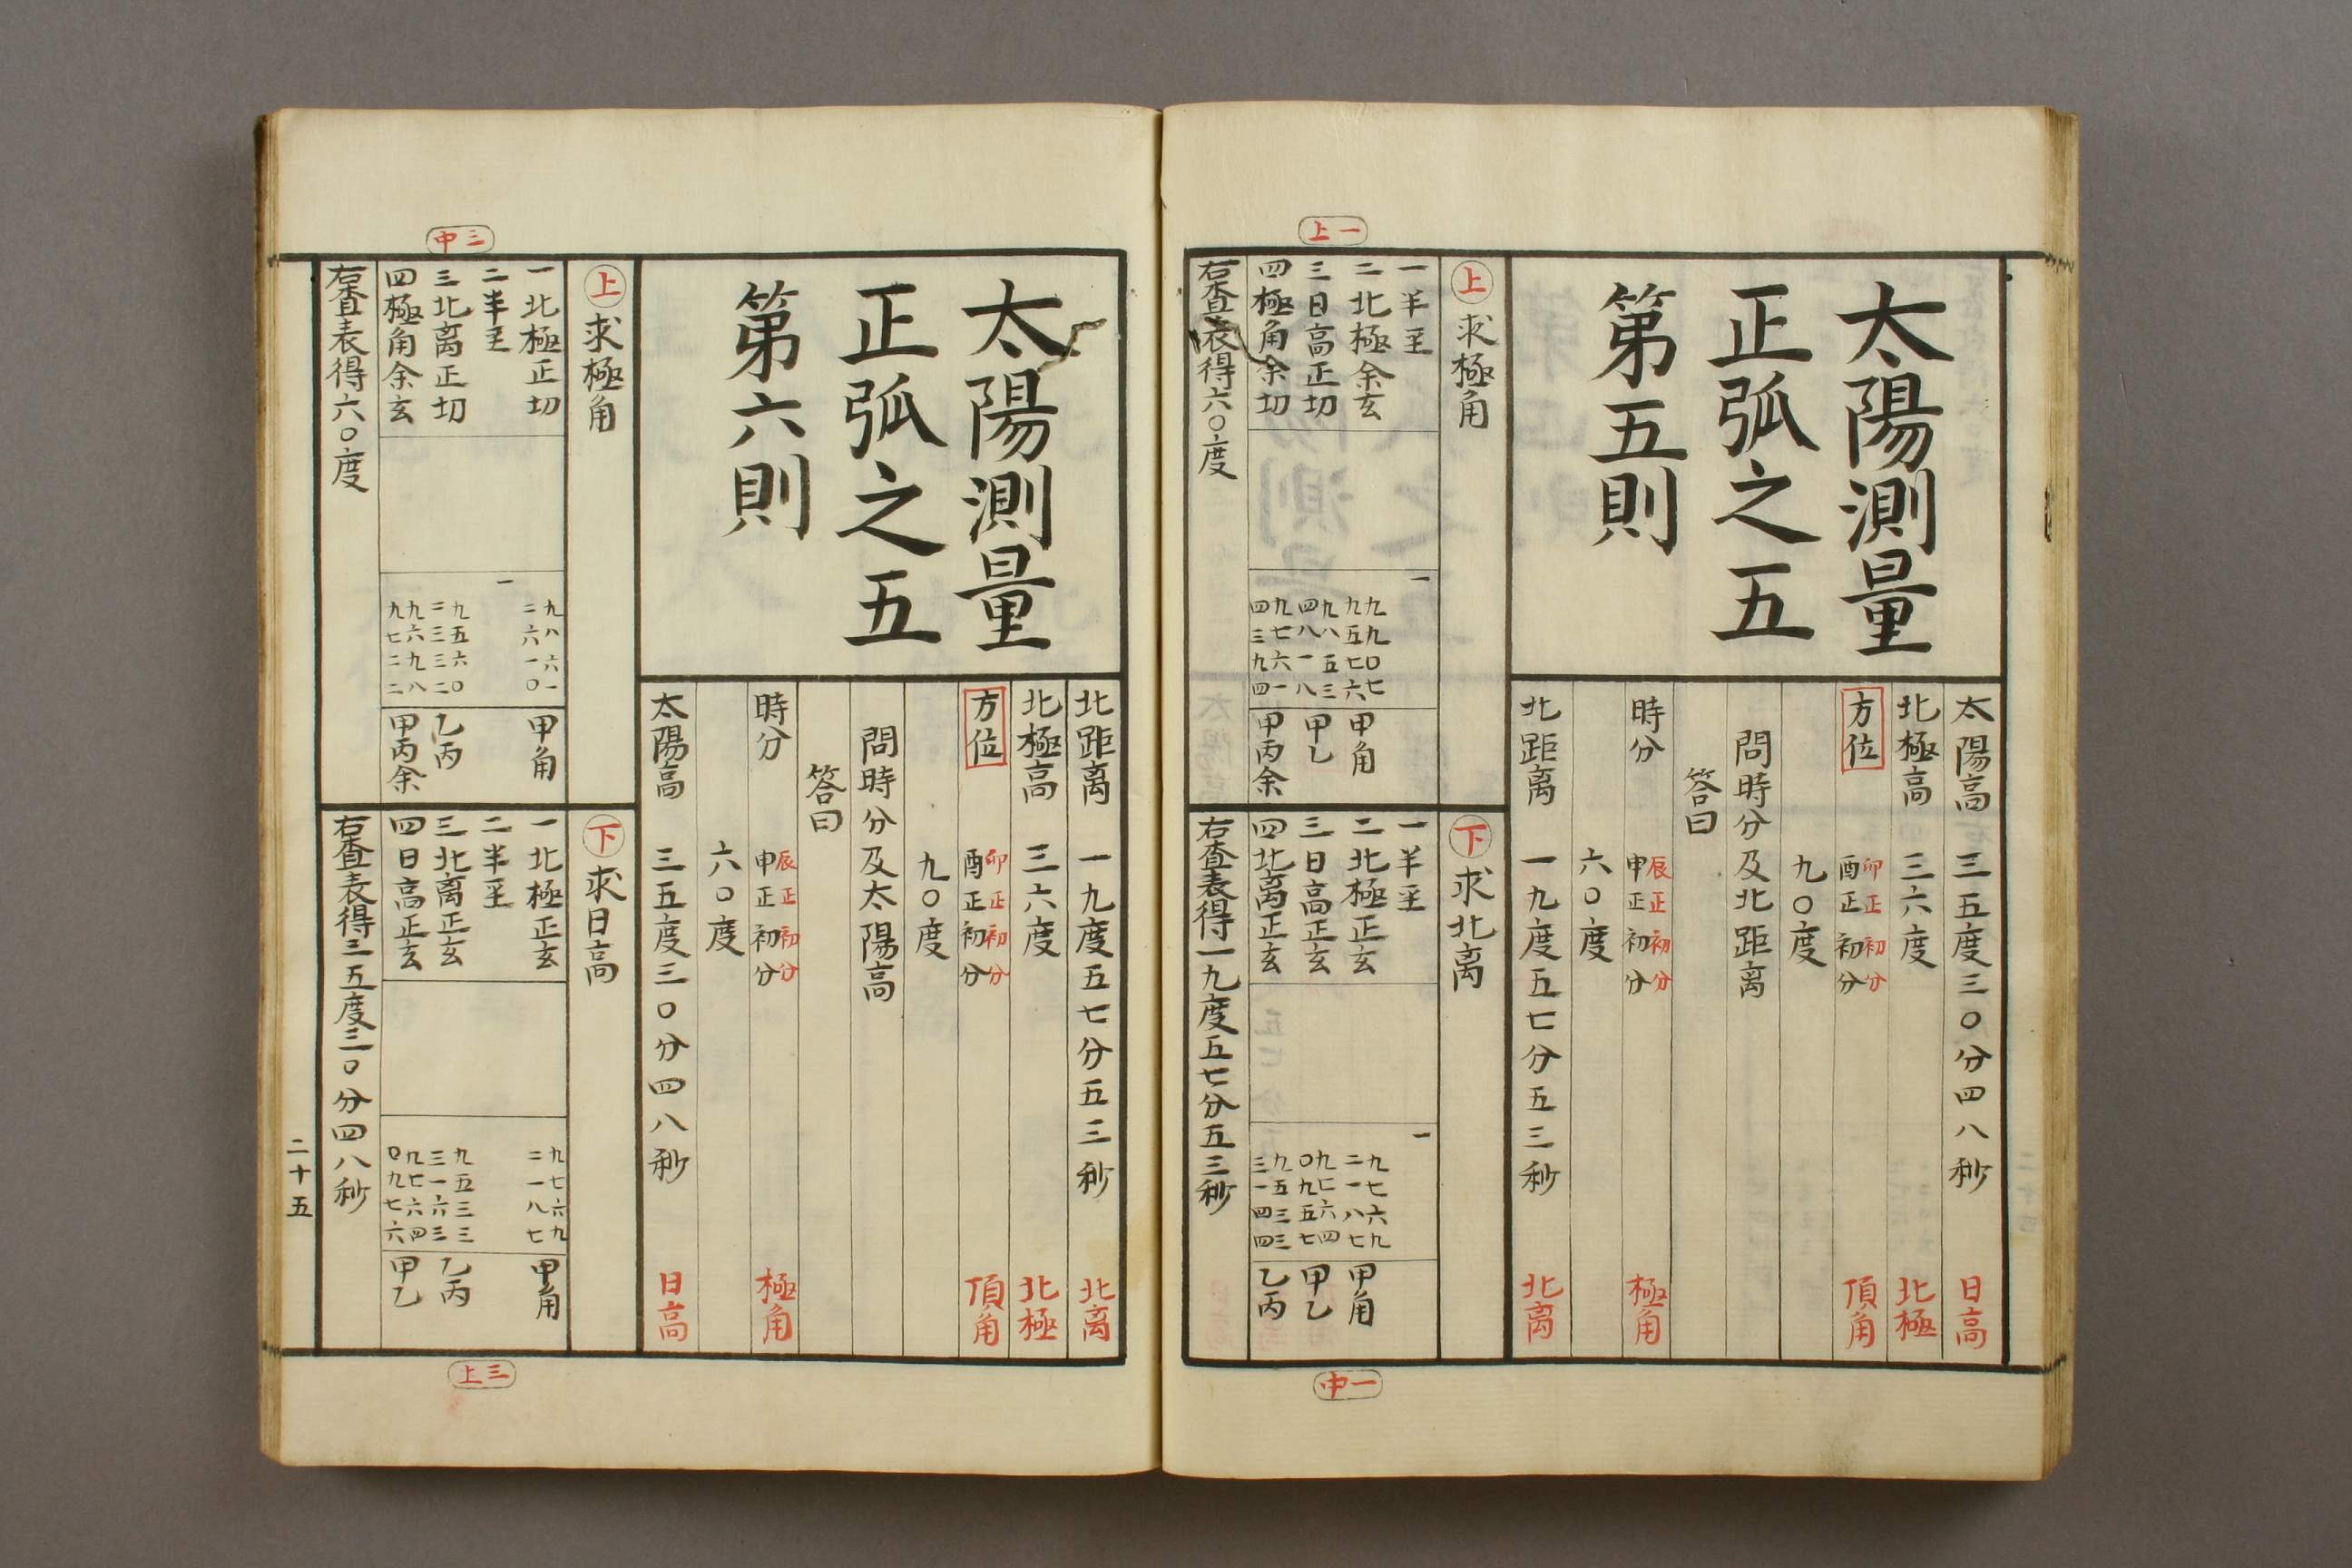 一上
太陽測量
正弧之五
第五則
太陽高 三五度三〇分四八秒 日高
北極高 三六度 北極
方位 卯正初分 酉正初分 頂角
九〇度
問時分及北距离
答曰
時分 辰正初分 申正初分 極角
六〇度
北距离 一九度五七分五三秒 北离
上 求極角
一半至 一
二北極余玄 九九〇七 九五七六 甲角
三日高正切 九八五三 四八一八 甲乙
四極角余切 九七六一 四三九四 甲丙余
右查表得六〇度
下 求北离
一半至 一
二北極正玄 九七六九 二一八七 甲角
三日高正玄 九七六四 〇九五七 甲乙
四北离正玄 九五三三 三一四四 乙丙
右查表得一九度五七分五三秒
一中
三中
太陽測量
正弧之五
第六則
北距离 一九度五七分五三秒 北离
北極高 三六度 北極
方位 卯正初分 酉正初分 頂角
九〇度
問時分及太陽高
答曰
時分 辰正初分 申正初分 極角
六〇度
太陽高 三五度三〇分四八秒 日高
上 求極角
一北極正切 九八六一 二六一〇 甲角
二半至 一
三北离正切 九五六〇 二三三二 乙丙
四極角余玄 九六九八 九七二二 甲丙余
右查表得六〇度
下 求日高
一北極正玄 九七六九 二一八七 甲角
二半至
三北离正玄 九五三三 三一六三 乙丙
四日高正玄 九七六四 〇九七六 甲乙
右查表得三五度三〇分四八秒
二十五
三上